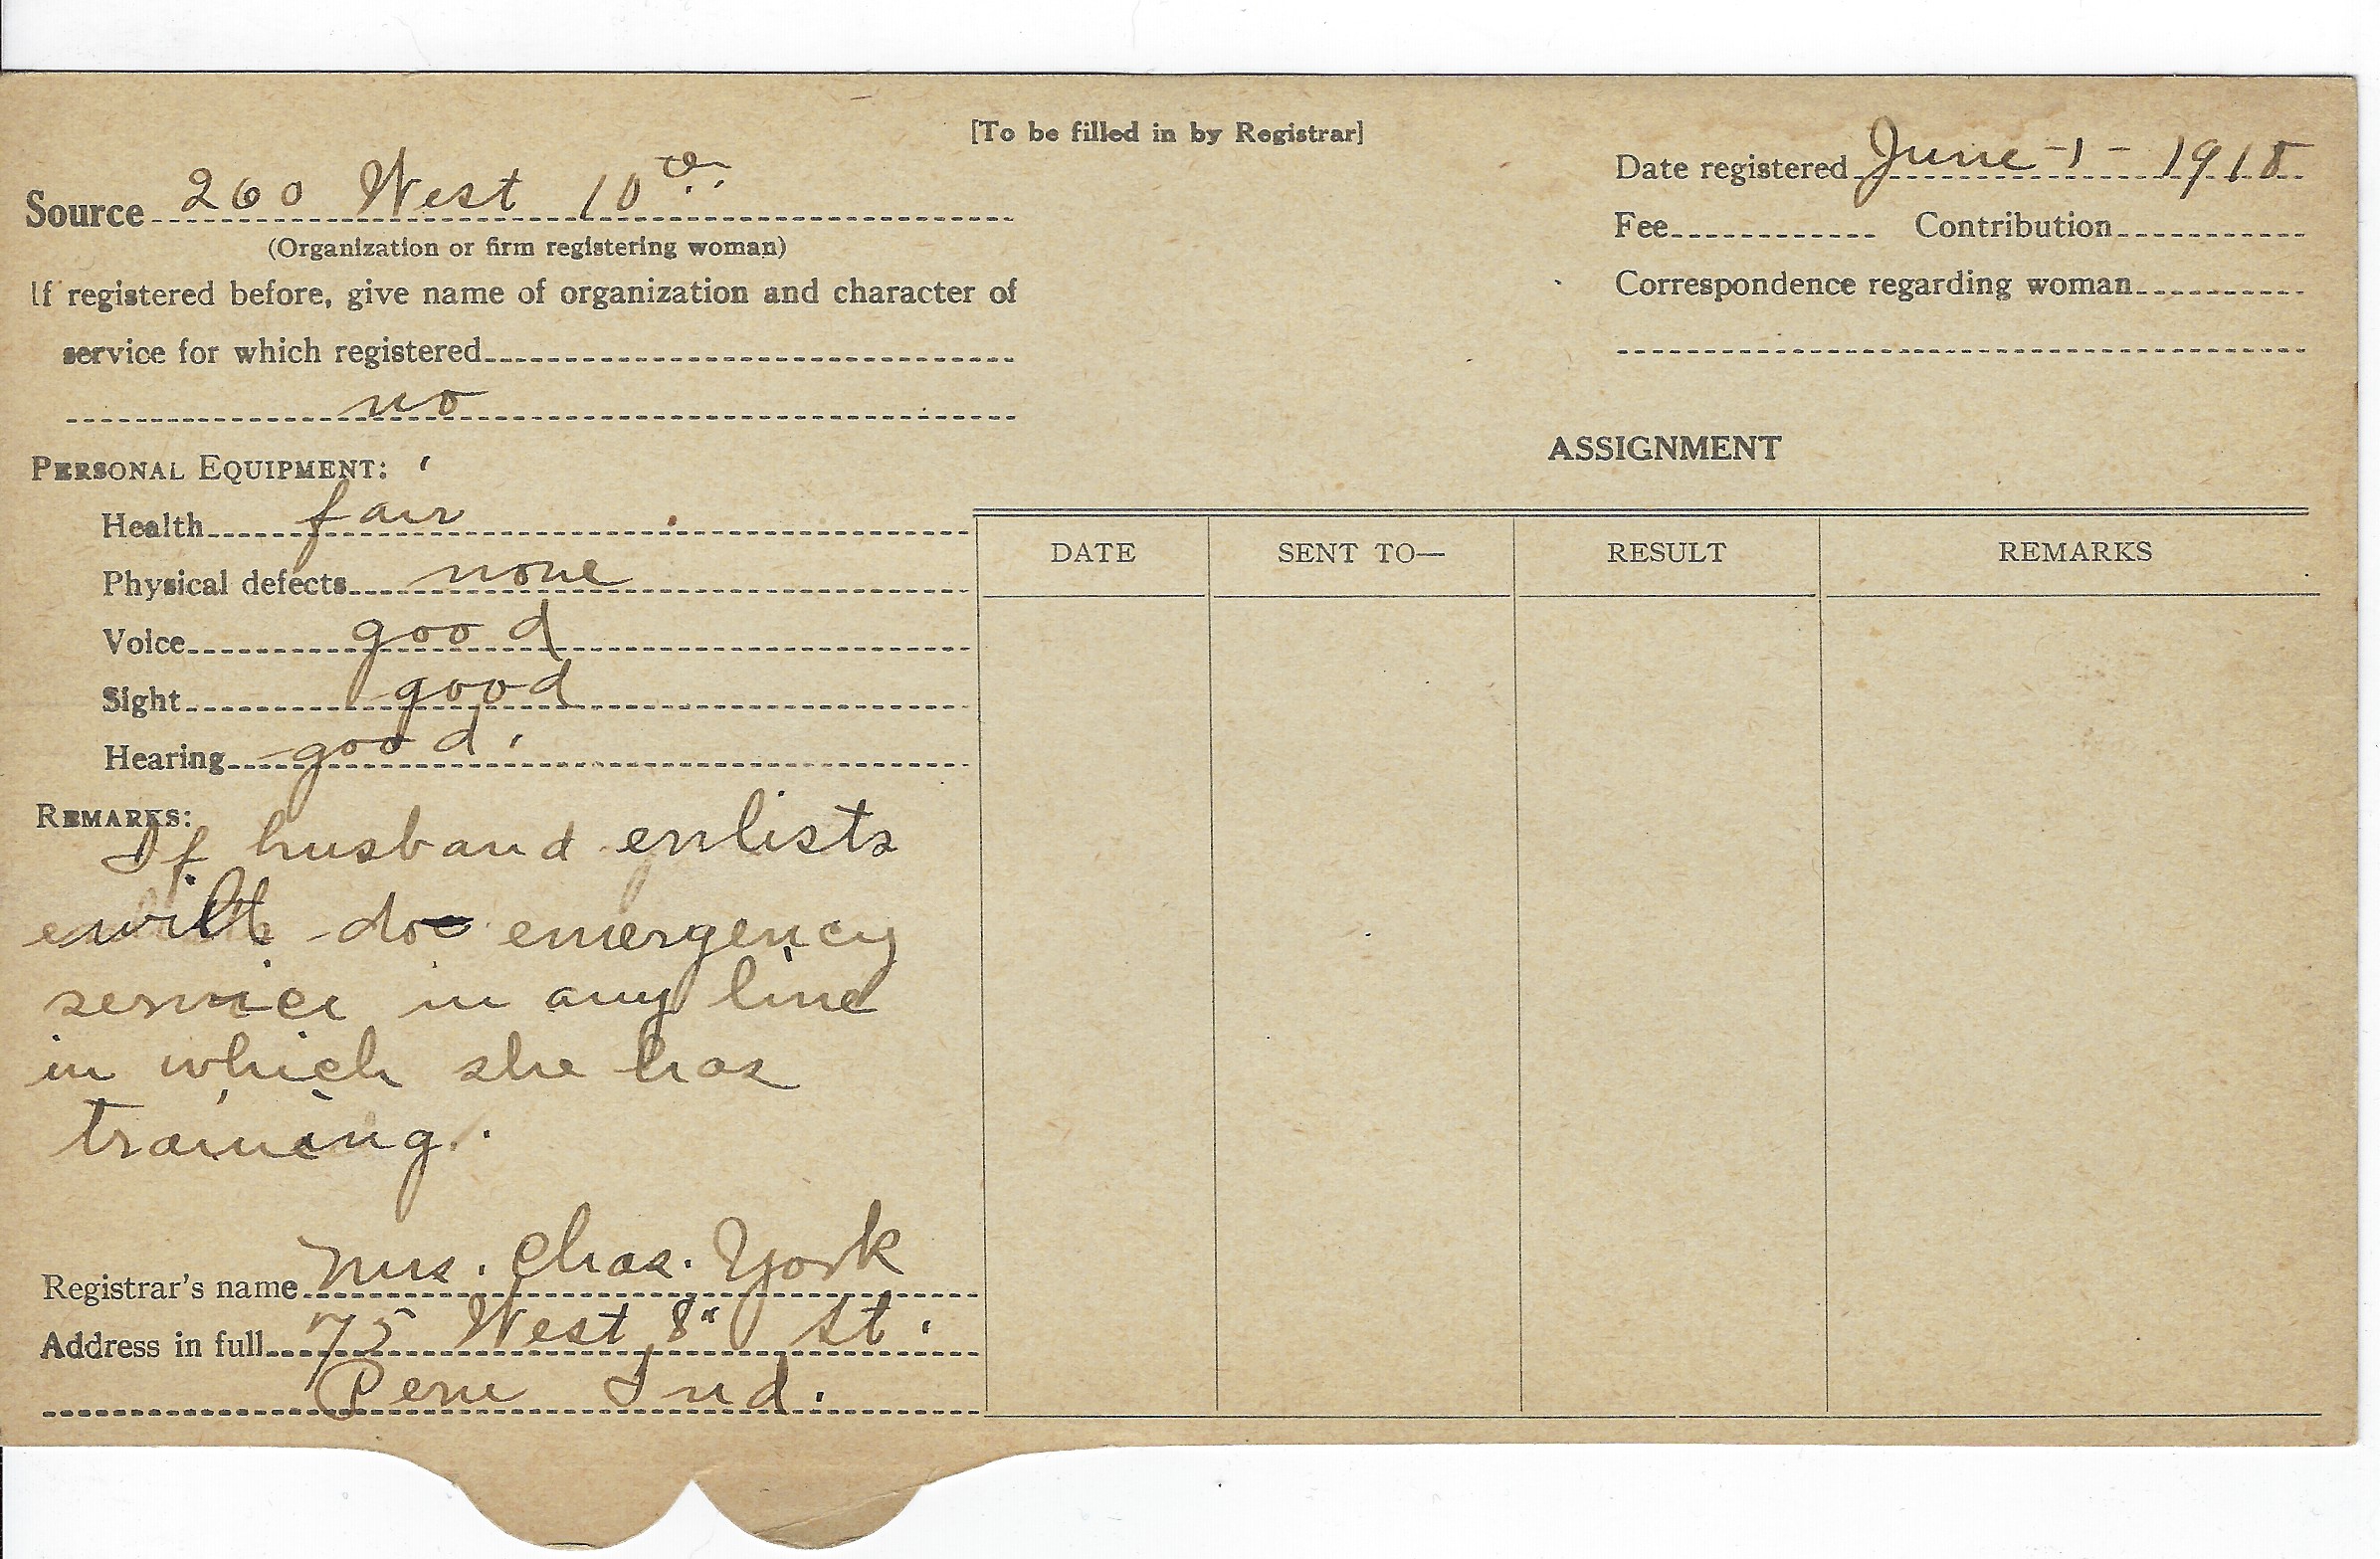 [To be filled in by Registrar]
Source 260 West 10th
(Organization or firm registering woman)
If registered before, give name of organization and character of
service for which registered
no
Date registered June-1-1918
Fee Contribution
Correspondence regarding woman
PERSONAL EQUIPMENT:
Health fair
Physical defects none
Voice good
Sight good
Hearing good.
REMARKS:
If husband enlists
will do emergency
service in any line
in which she has
training.
Registrar's name Mrs. Chas. York
Address in full 75 West 8" St.
Peru Ind.
ASSIGNMENT
DATE SENT TO— RESULT REMARKS